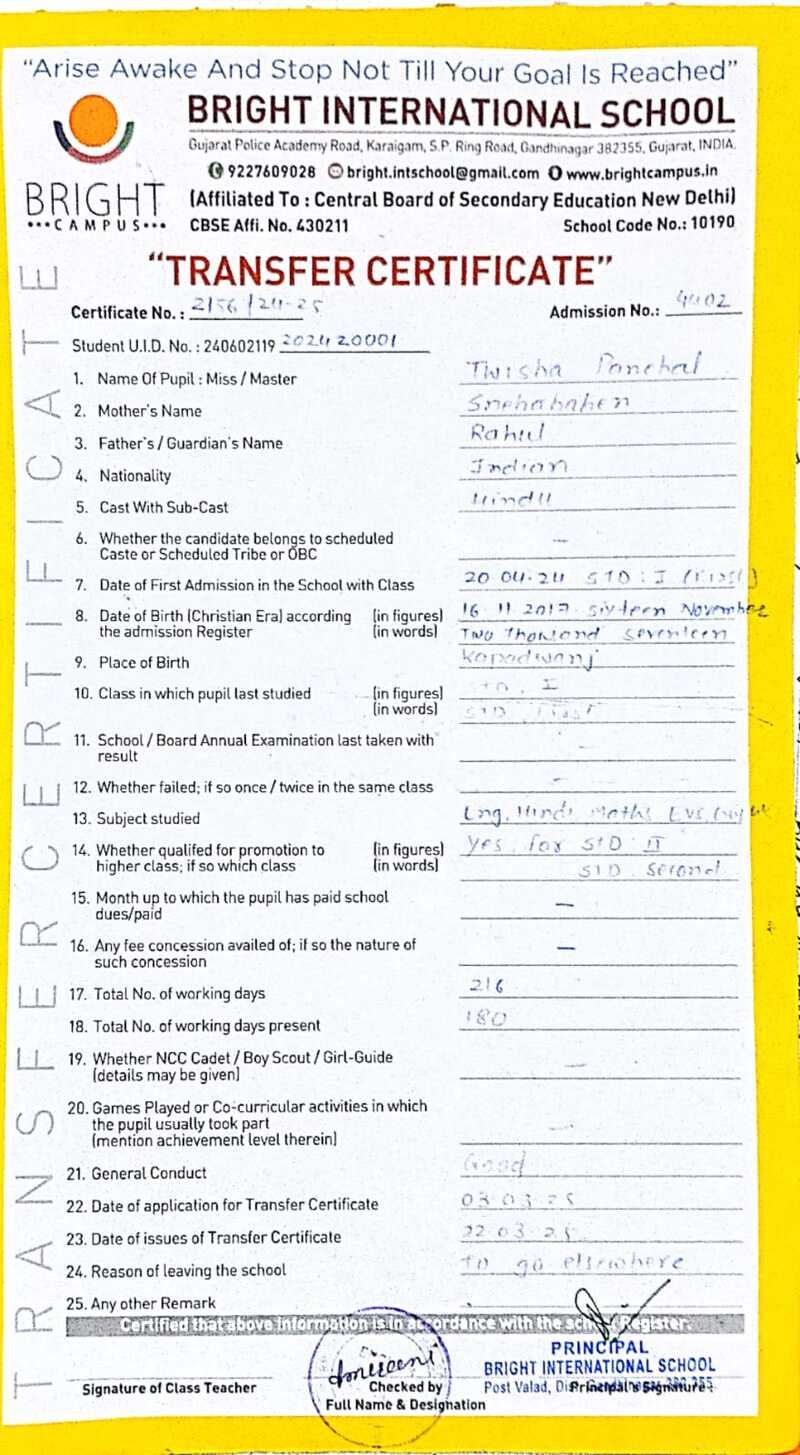 "Arise Awake And Stop Not Till Your Goal Is Reached"
BRIGHT INTERNATIONAL SCHOOL
Gujarat Police Academy Road, Karaigam, S.P. Ring Road, Gandhinagar 382355, Gujarat, INDIA.
9227609028 bright.intschool@gmail.com www.brightcampus.in
BRIGHT
•••CAMPUS•••
(Affiliated To : Central Board of Secondary Education New Delhi)
CBSE Affi. No. 430211 School Code No.: 10190
"TRANSFER CERTIFICATE"
TRANSFER CERTIFICATE
Certificate No. : 2156/24-25 Admission No.: 4402
Student U.I.D. No. : 240602119 202420001
1. Name Of Pupil : Miss / Master Twisha Panchal
2. Mother's Name Snehabahen
3. Father's / Guardian's Name Rahul
4. Nationality Indian
5. Cast With Sub-Cast Hindu
6. Whether the candidate belongs to scheduled
Caste or Scheduled Tribe or OBC –
7. Date of First Admission in the School with Class 20-04-24 STD : I (First)
8. Date of Birth (Christian Era) according (in figures) 16-11-2017 sixteen November
the admission Register (in words) Two Thousand seventeen
9. Place of Birth Kapadwanj
10. Class in which pupil last studied (in figures) STD. I
(in words) STD. First
11. School / Board Annual Examination last taken with
result –
12. Whether failed; if so once / twice in the same class –
13. Subject studied Eng, Hindi Maths Evs, Guj
14. Whether qualifed for promotion to (in figures) Yes, for STD II
higher class; if so which class (in words) STD. Second
15. Month up to which the pupil has paid school
dues/paid –
16. Any fee concession availed of; if so the nature of
such concession –
17. Total No. of working days 216
18. Total No. of working days present 180
19. Whether NCC Cadet / Boy Scout / Girl-Guide
(details may be given) –
20. Games Played or Co-curricular activities in which
the pupil usually took part
(mention achievement level therein) –
21. General Conduct Good
22. Date of application for Transfer Certificate 03-03-25
23. Date of issues of Transfer Certificate 22-03-25
24. Reason of leaving the school To go elsewhere
25. Any other Remark
Certified that above information is in accordance with the school Register.
PRINCIPAL
BRIGHT INTERNATIONAL SCHOOL
Post Valad,
Signature of Class Teacher Checked by Principal's Signature
Full Name & Designation